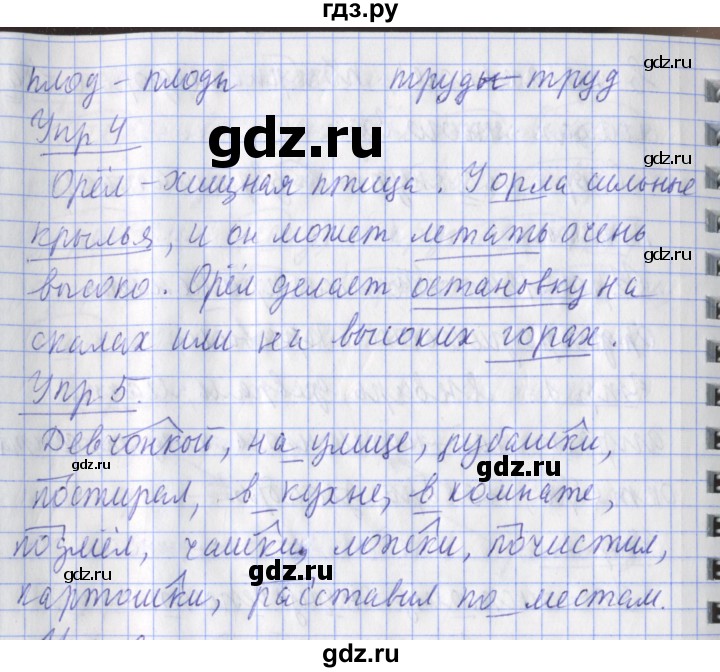 гдз.ру
плод – плоды труды – труд
gdz.ru
Упр 4
gdz.ru
gdz.ru
Орёл – хищная птица. У орла сильные
крылья, и он может летать очень
gdz.ru
высоко. Орёл делает остановку на
gdz.ru
скалах или на высоких горах.
gdz.ru
Упр 5.
Девчонкой, на улице, рубашки,
gdz.ru
gdz.ru
постирал, в кухне, в комнате,
подмёл, чашки, ложки, почистил,
gdz.ru
gdz.ru
картошки, расставил по местам.
gdz.ru